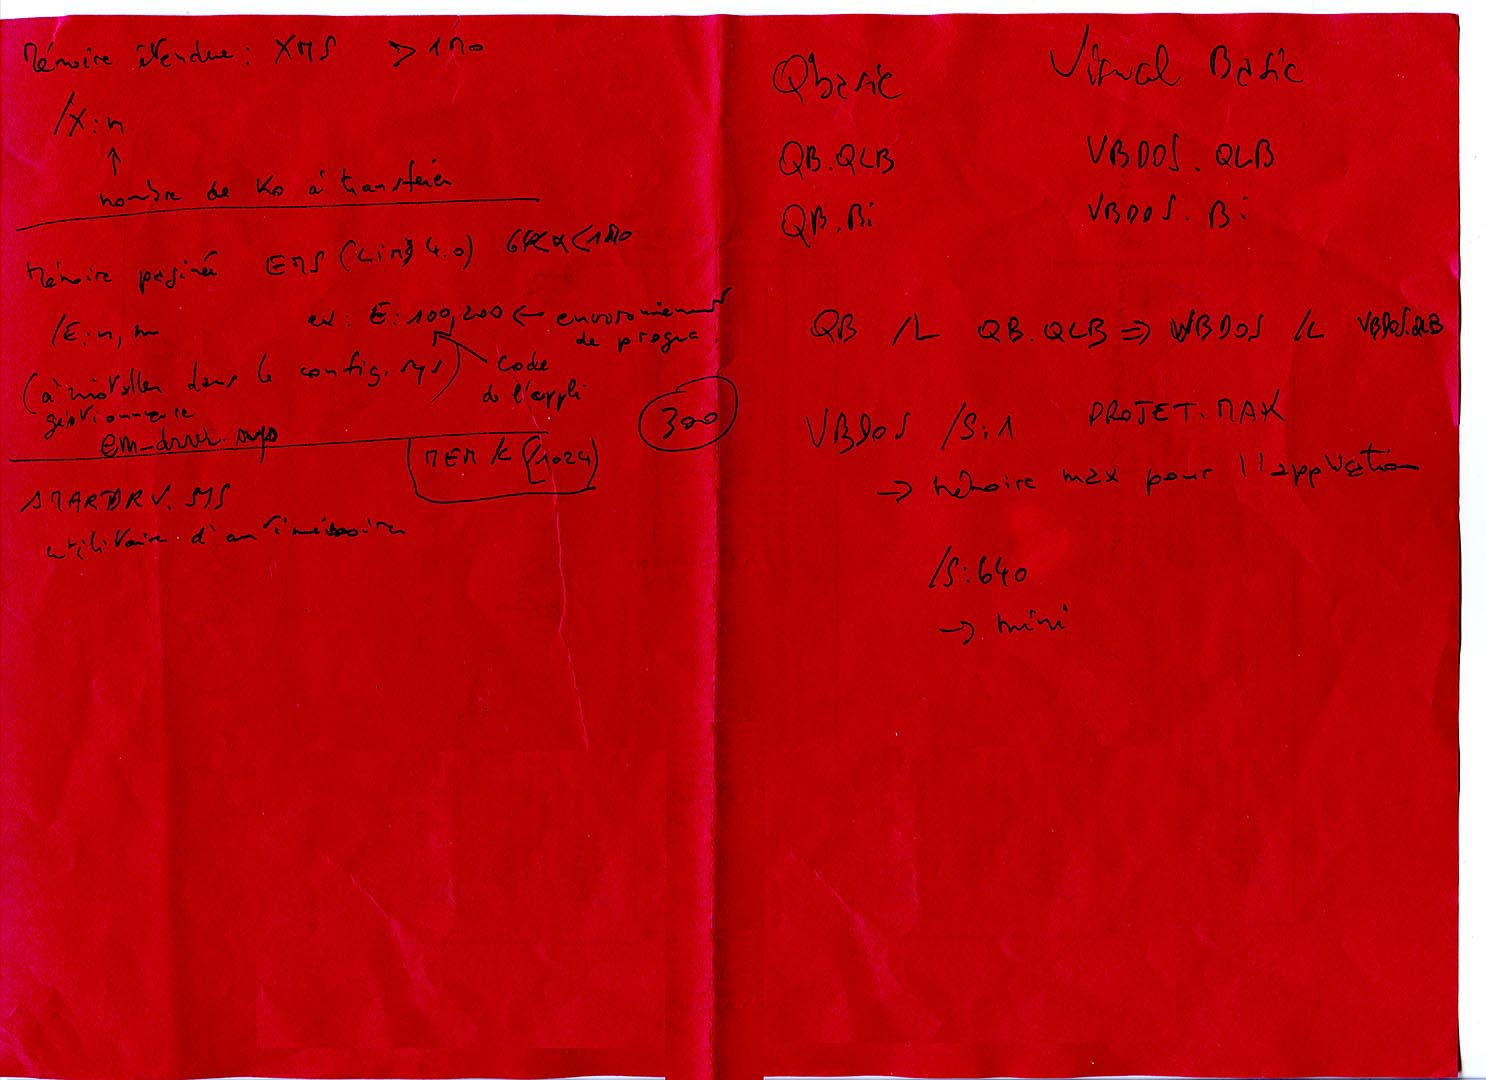 Mémoire étendue : XMS > 1Mo
/X:n
↑
nombre de Ko à transférer
Mémoire paginée EMS (Lim 4.0) 64K<x<1Mo
/E:n,m ex : E:100,200 ← environnement de progra.
code de l'appli
(à installer dans le config.sys)
gestionnaire
300
MEM K (1024)
SMARTDRV.SYS
utilitaire d'
Qbasic Visual Basic
QB.QLB VBDOS.QLB
QB.Bi VBDOS.Bi
QB /L QB.QLB ⇒ VBDOS /L VBDOS.QLB
VBDOS /S:1 PROJET.MAK
→ mémoire max pour l'application
/S:640
→ mini